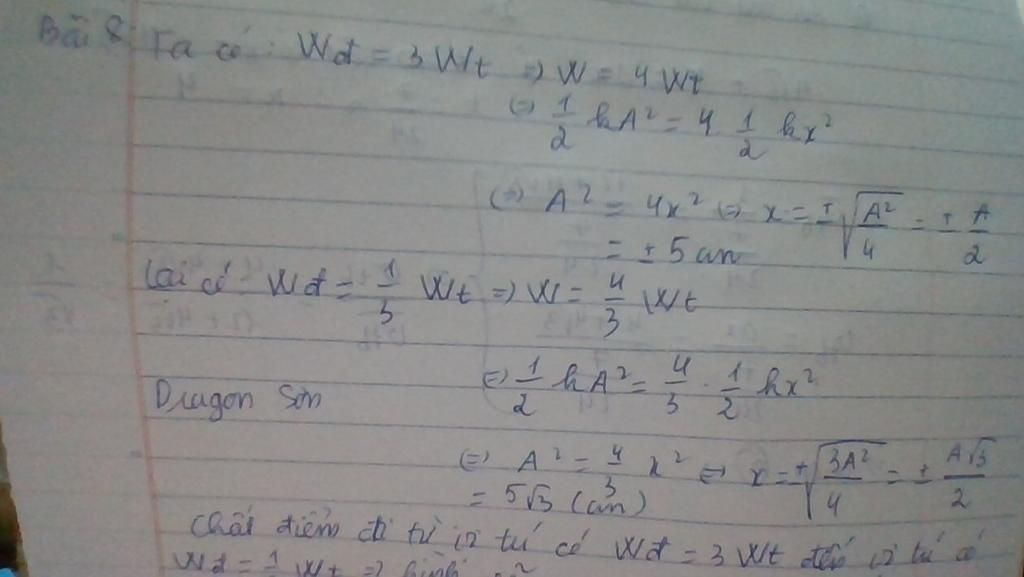 Bài 8: Ta có: Wđ = 3 Wt => W = 4 Wt
(=) 1/2 kA² = 4 1/2 kx²
(=) A² = 4x² (=) x = ±√(A²/4) = ± A/2
= ± 5 cm
Lại có Wđ = 1/3 Wt => W = 4/3 Wt
(=) 1/2 kA² = 4/3 . 1/2 kx²
Dragon Sơn
(=) A² = 4/3 x² (=) x = ±√(3A²/4) = ± A√3/2
= 5√3 (cm)
Chất điểm đi từ vị trí có Wđ = 3 Wt đến vị trí có
Wđ = 1/3 Wt =>